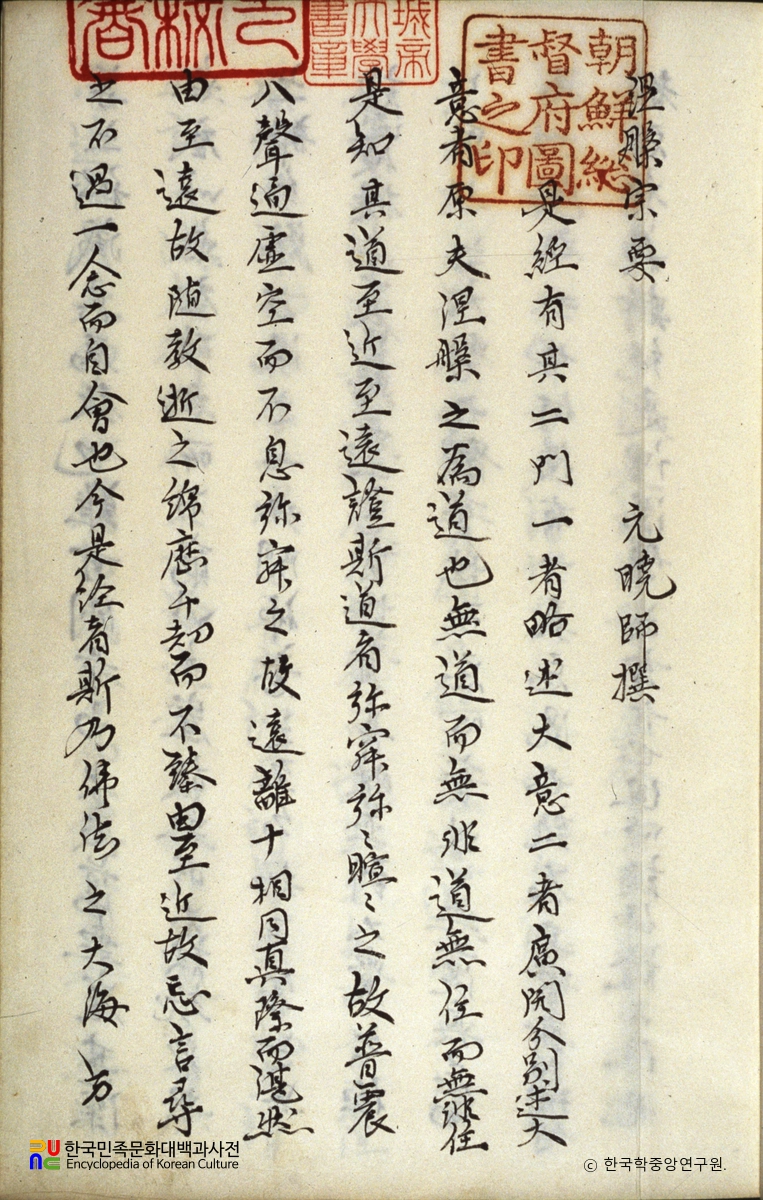 朝鮮總
督府圖
書之印
城帝
大學
書章
涅槃宗要 元曉師撰
是經有其二門一者略述大意二者廣開分別述大
意者原夫涅槃之爲道也無道而無非道無住而無非住
是知其道至近至遠證斯道者弥寂弥〻暄〻之故普震
八聲遍虛空而不息弥寂之故遠離十相同真際而湛然
由至遠故随教逝之綿歷千劫而不臻由至近故忘言尋
之不過一念而自會也今是經者斯乃佛法之大海方
한국민족문화대백과사전
Encyclopedia of Korean Culture
ⓒ 한국학중앙연구원.